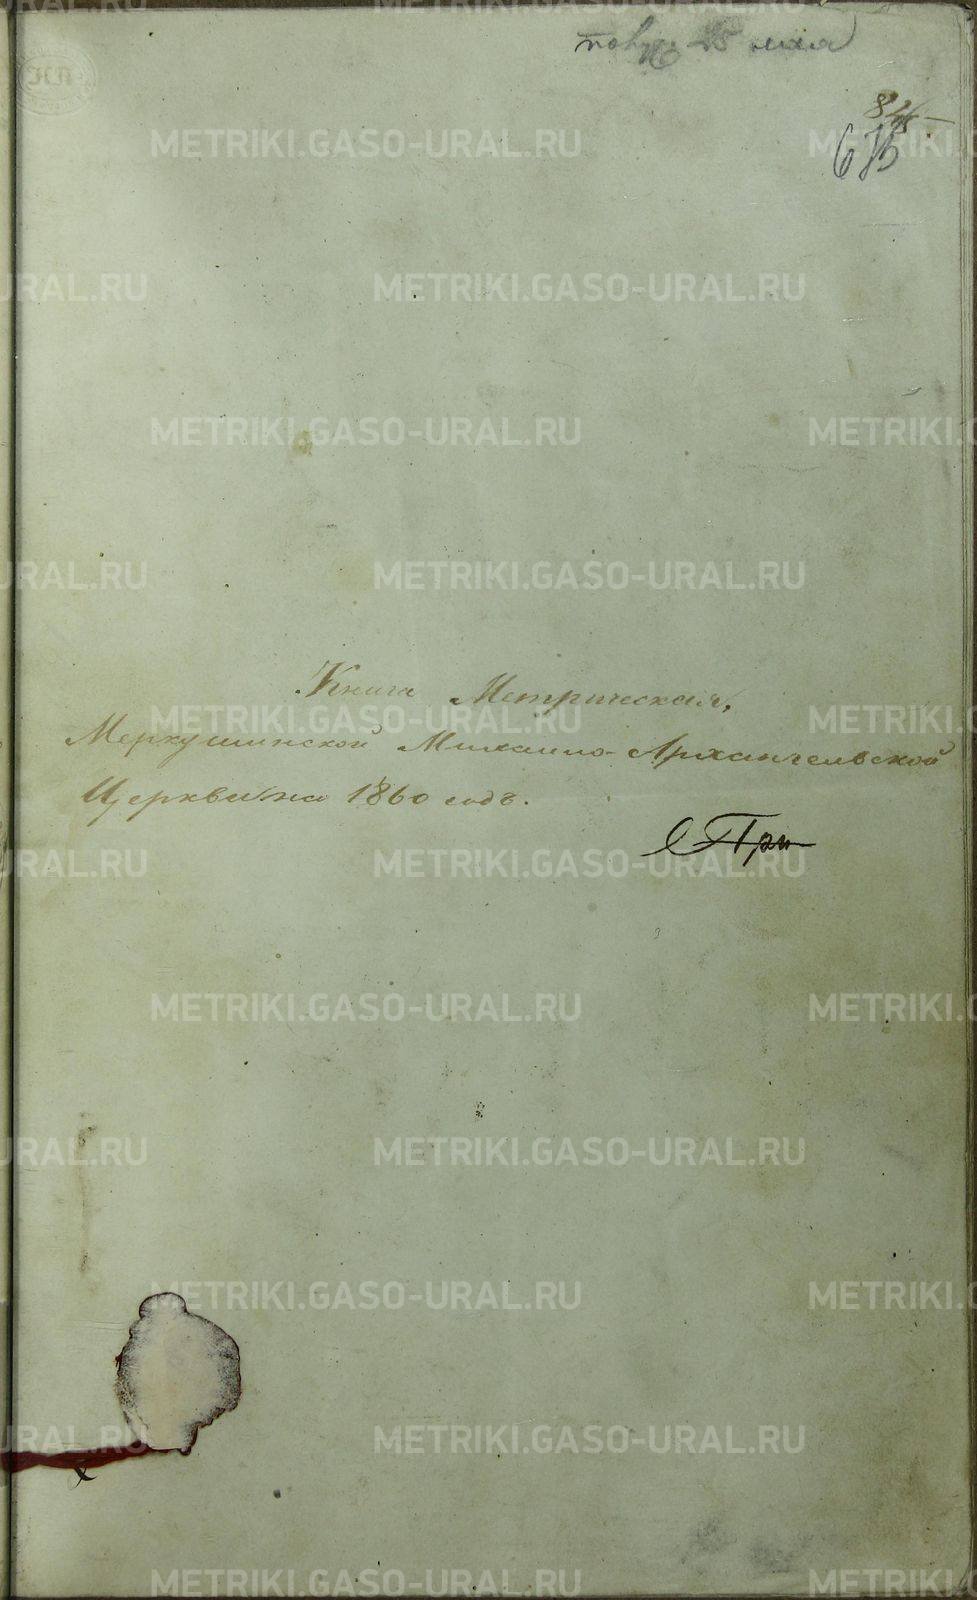 25 мая
Книга Метрическая,
Меркушинской Михаило-Архангельской
Церкви на 1860 годъ.
При
METRIKI.GASO-URAL.RU